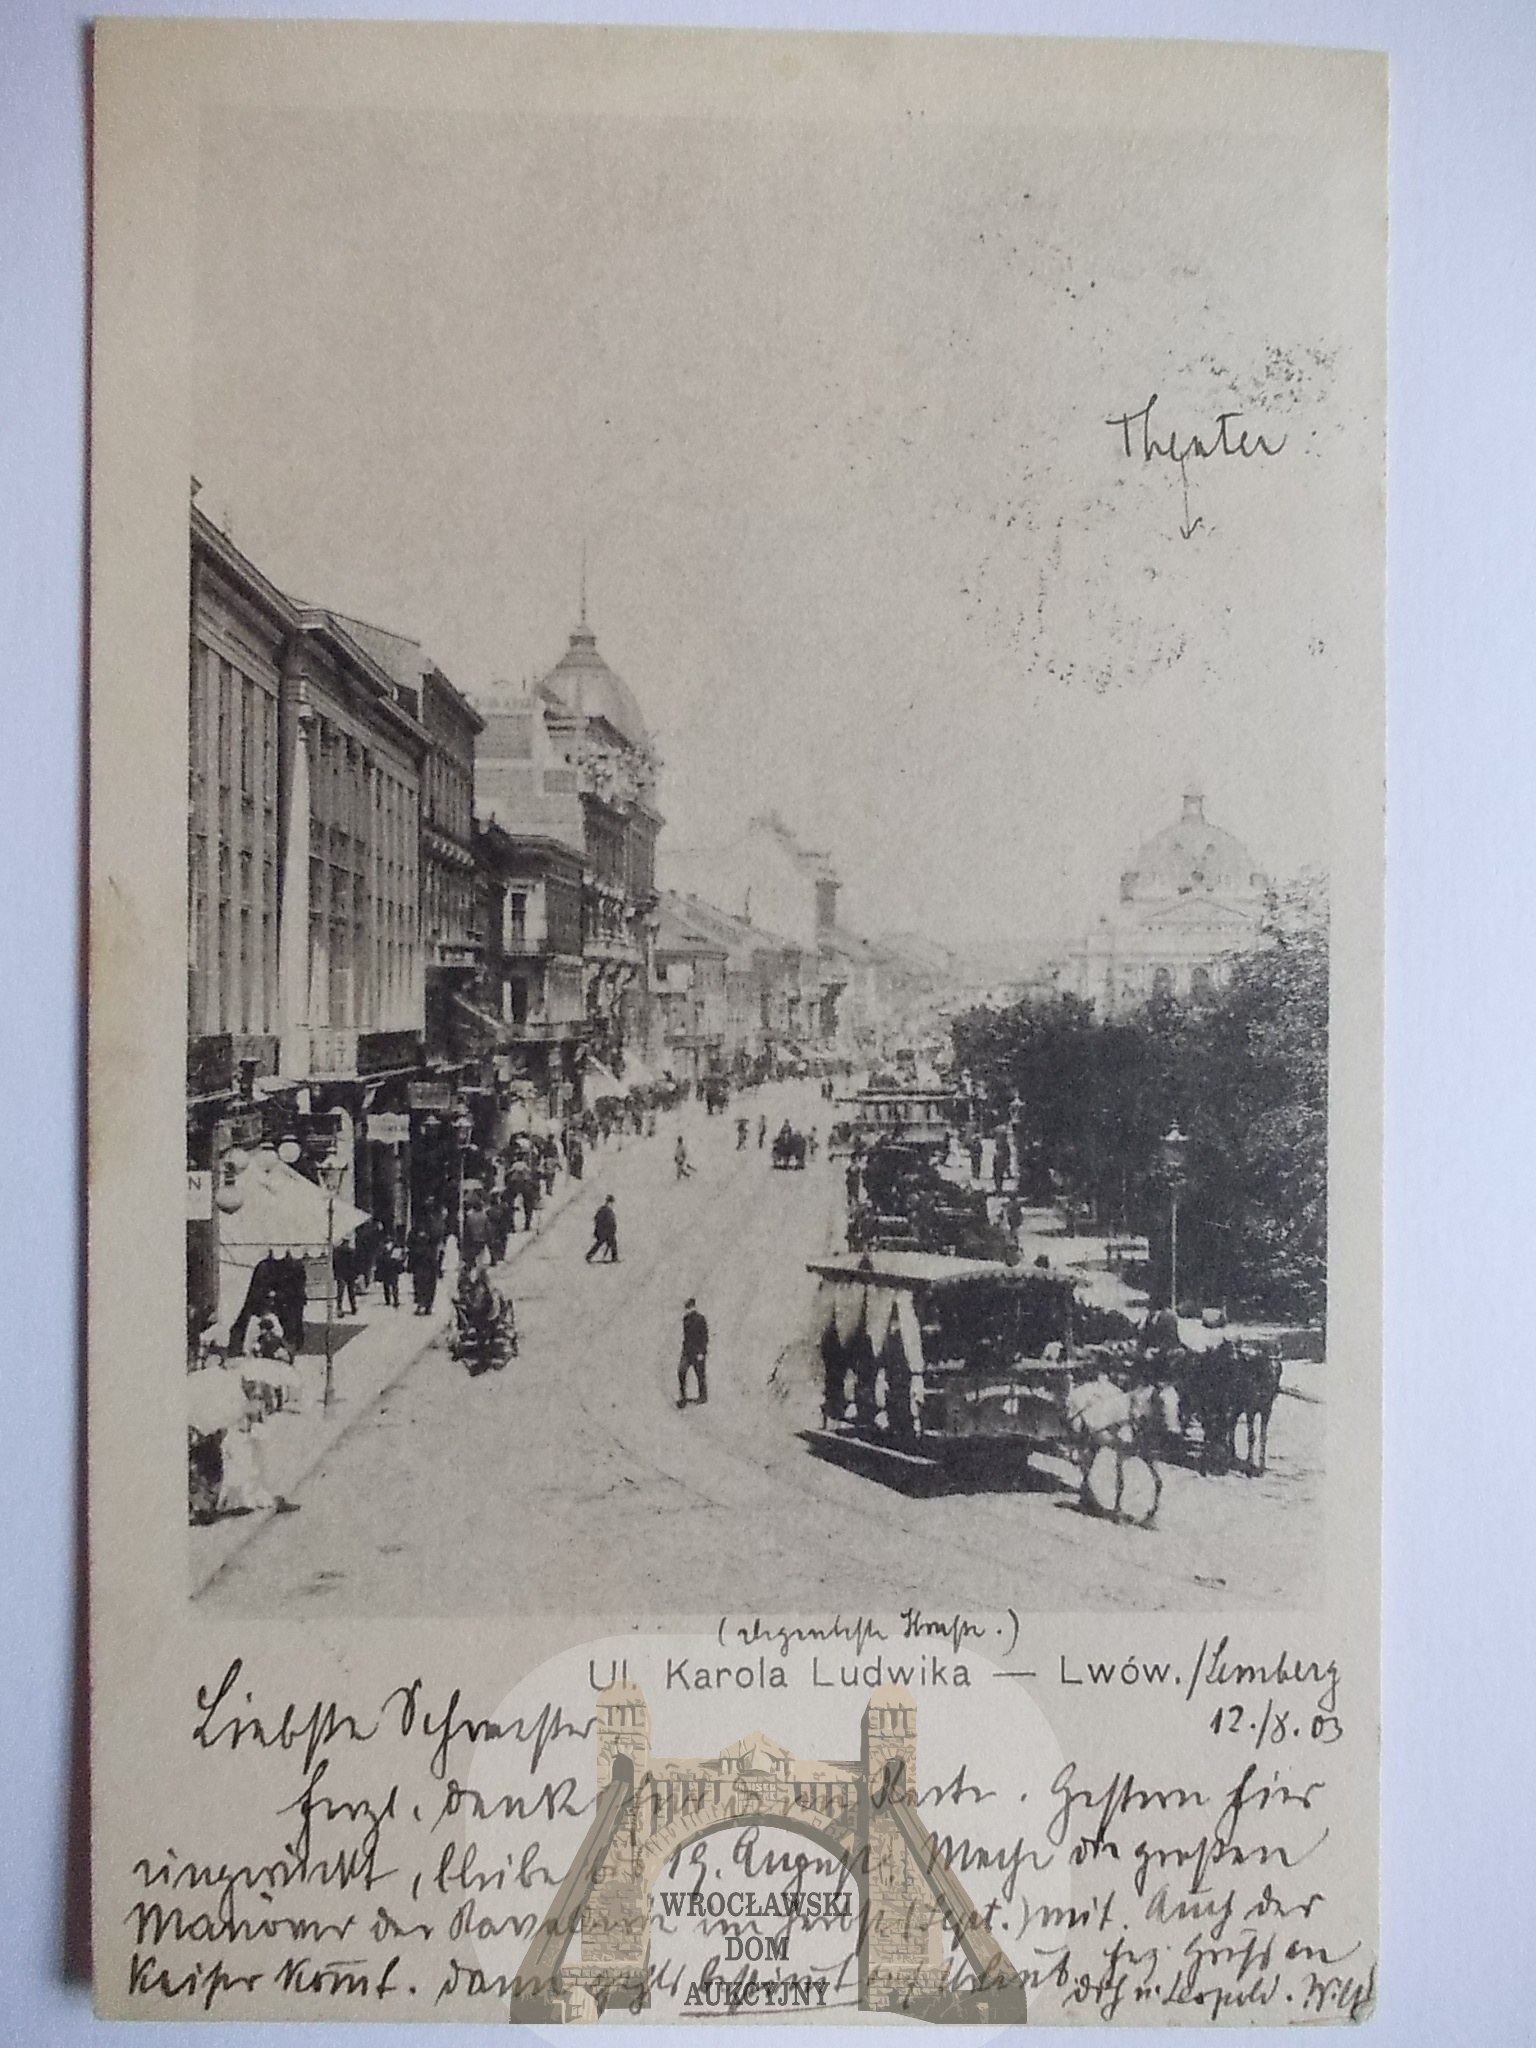 Theater
N
(belebteste Strasse.)
Ul. Karola Ludwika — Lwów./Lemberg
12./8.03
Liebste Schwester
herzl. Dank für Karte. Gestern hier
eingerückt, bleibe bis 19. August. Mache die großen
Manöver der Kavallerie im Herbst (Sept.) mit. Auch der
Kaiser kommt. dann gehts bestimmt auf Urlaub. Grüße an
dich u. Leopold. Willy
WROCŁAWSKI
DOM
AUKCYJNY